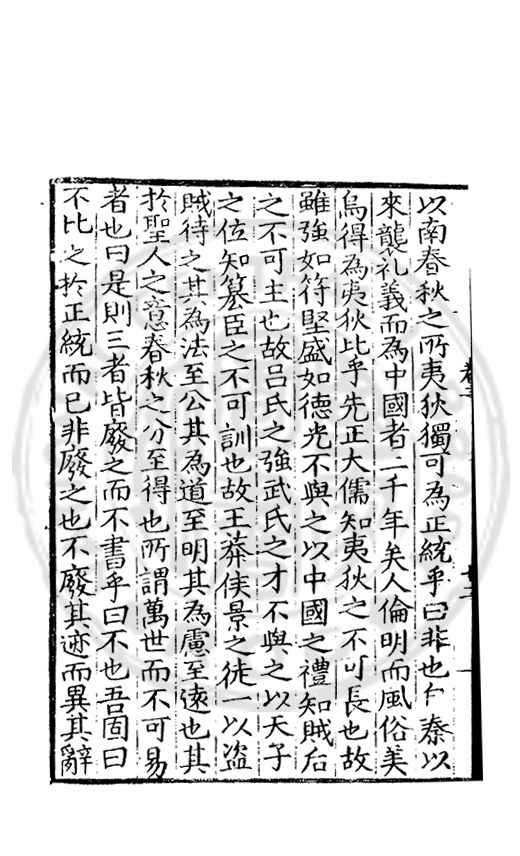 以南春秋之所夷狄獨可為正統乎曰非也自秦以
來襲礼義而為中國者二千年矣人倫明而風俗美
烏得為夷狄比乎先正大儒知夷狄之不可長也故
雖強如符堅盛如德光不與之以中國之禮知賊后
之不可主也故呂氏之強武氏之才不與之以天子
之位知簒臣之不可訓也故王莽侯景之徒一以盜
賊待之其為法至公其為道至明其為慮至遠也其
於聖人之意春秋之分至得也所謂萬世而不可易
者也曰是則三者皆廢之而不書乎曰不也吾固曰
不比之於正統而已非廢之也不廢其迹而異其辭